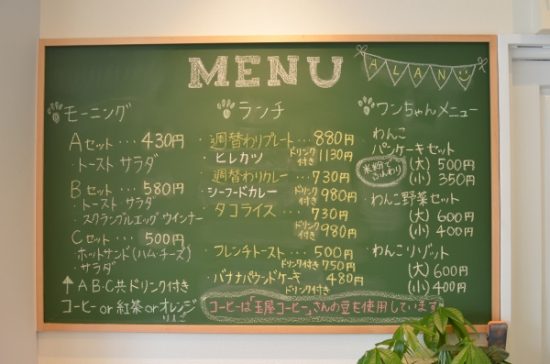 MENU
ALAN
モーニング
Aセット・・・430円
・トースト サラダ
Bセット・・・580円
・トースト サラダ
・スクランブルエッグ ウインナー
Cセット・・・500円
・ホットサンド(ハム・チーズ)
・サラダ
↑A・B・C共ドリンク付き
コーヒー or 紅茶 or オレンジ
りんご
ランチ
・週替わりプレート・・・880円
・ヒレカツ ドリンク付き 1130円
・週替わりカレー・・・730円
・シーフードカレー ドリンク付き 980円
・タコライス・・・730円
ドリンク付き 980円
・フレンチトースト・・・500円
ドリンク付き 750円
・バナナパウンドケーキ 480円
ドリンク付き
コーヒーは「玉屋コーヒー」さんの豆を使用しています
ワンちゃんメニュー
・わんこ
パンケーキセット
米粉でふんわり
(大) 500円
(小) 350円
・わんこ野菜セット
(大) 600円
(小) 400円
・わんこリゾット
(大) 600円
(小) 400円